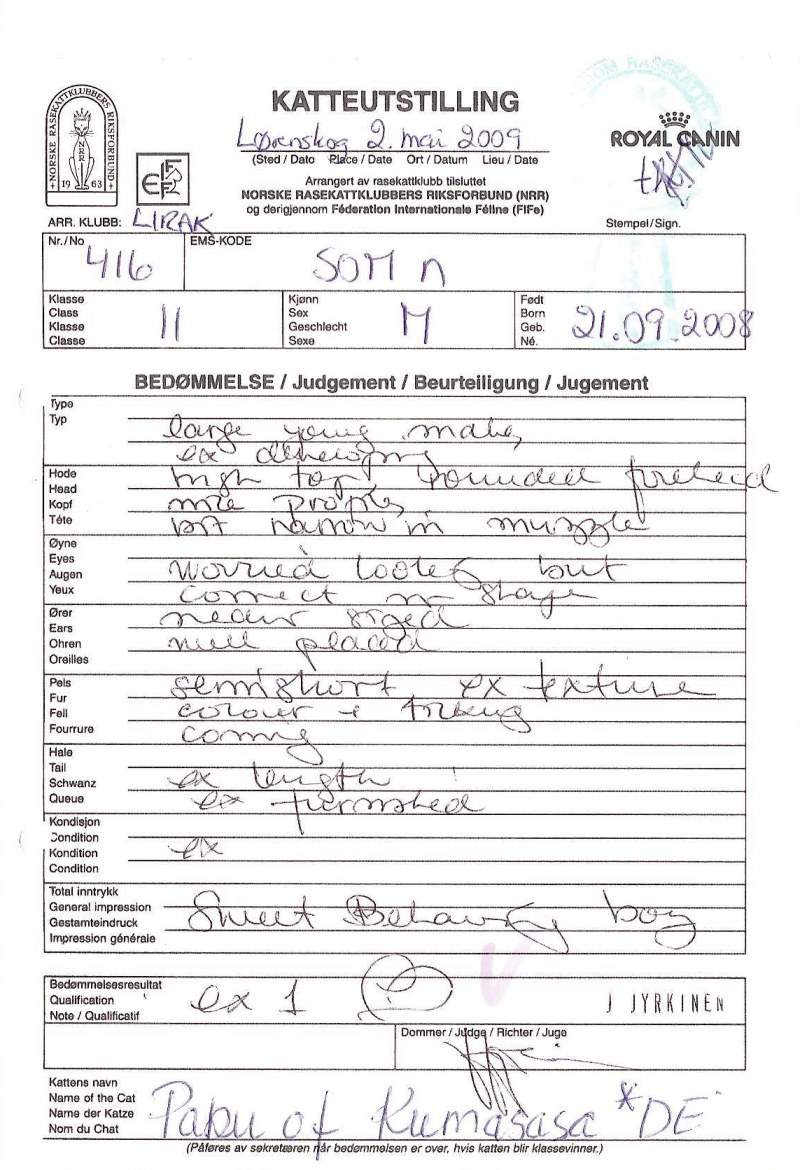 NORSKE RASEKATTKLUBBERS RIKSFORBUND
NRR
1963
FIFe
KATTEUTSTILLING
Lørenskog 2. mai 2009
(Sted / Dato Place / Date Ort / Datum Lieu / Date
Arrangert av rasekattklubb tilsluttet
NORSKE RASEKATTKLUBBERS RIKSFORBUND (NRR)
og derigjennom Féderation Internationale Féline (FIFe)
ROYAL CANIN
ARR. KLUBB: LIRAK
Stempel/Sign.
Nr./No 416
EMS-KODE SOM n
Klasse
Class
Klasse
Classe
II
Kjønn
Sex
Geschlecht
Sexe
M
Født
Born
Geb.
Né.
21.09.2008
BEDØMMELSE / Judgement / Beurteiligung / Jugement
Type
Typ
large young male,
ex
Hode
Head
Kopf
Téte
high top, rounded forehead
nice profile,
bit narrow in muzzle
Øyne
Eyes
Augen
Yeux
worried looks but
correct in shape
Ører
Ears
Ohren
Oreilles
sized
well placed
Pels
Fur
Fell
Fourrure
semishort ex texture
colour + ticking
coming
Hale
Tail
Schwanz
Queue
ex length
ex furnished
Kondisjon
Condition
Kondition
Condition
ex
Total inntrykk
General impression
Gestamteindruck
Impression générale
Sweet Behaving boy
Bedømmelsesresultat
Qualification
Note / Qualificatif
ex 1
J JYRKINEN
Dommer / Judge / Richter / Juge
Kattens navn
Name of the Cat
Name der Katze
Nom du Chat
Pabu of Kumasasa *DE
(Påføres av sekretæren når bedømmelsen er over, hvis katten blir klassevinner.)